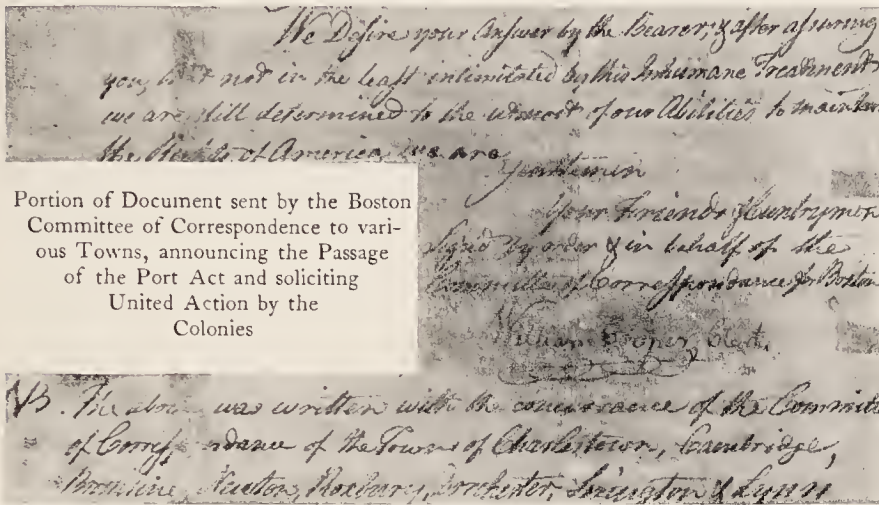 We Desire your Answer by the Bearer; & after assuring
you, not in the least intimidated by this Inhumane Treatment
we are still determined to the utmost of our Abilities to maintain
the Rights of America we are
Gentlemen
Your Friends & Countrymen
Signed by order & in behalf of the
Committee of Correspondence for Boston
William Cooper Clerk
Portion of Document sent by the Boston
Committee of Correspondence to vari-
ous Towns, announcing the Passage
of the Port Act and soliciting
United Action by the
Colonies
NB. The above was written with the concurrence of the Committe
of Correspondance of the Towns of Charlestown, Cambridge,
Brookline, Newton, Roxbury, Dorchester, Lexington & Lynn